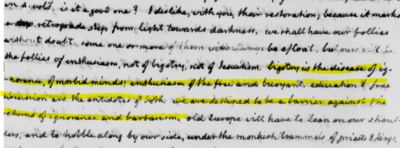 in a word, is it a good one? I dislike, with you, their restoration; because it marks
a retrograde step from light towards darkness. we shall have our follies
without doubt. some one or more of them will always be afloat. but ours will be
the follies of enthusiasm, not of bigotry, not of Jesuitism. bigotry is the disease of ig-
norance, of morbid minds; enthusiasm of the free and buoyant. education & free
discussion are the antidotes of both. we are destined to be a barrier against the
returns of ignorance and barbarism. old Europe will have to lean on our shoul-
ders, and to hobble along by our side, under the monkish trammels of priests & kings,